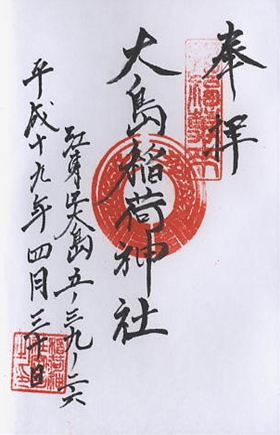 奉拝
大島稲荷神社
江東区大島五ー三九ー二六
平成十九年四月三十日